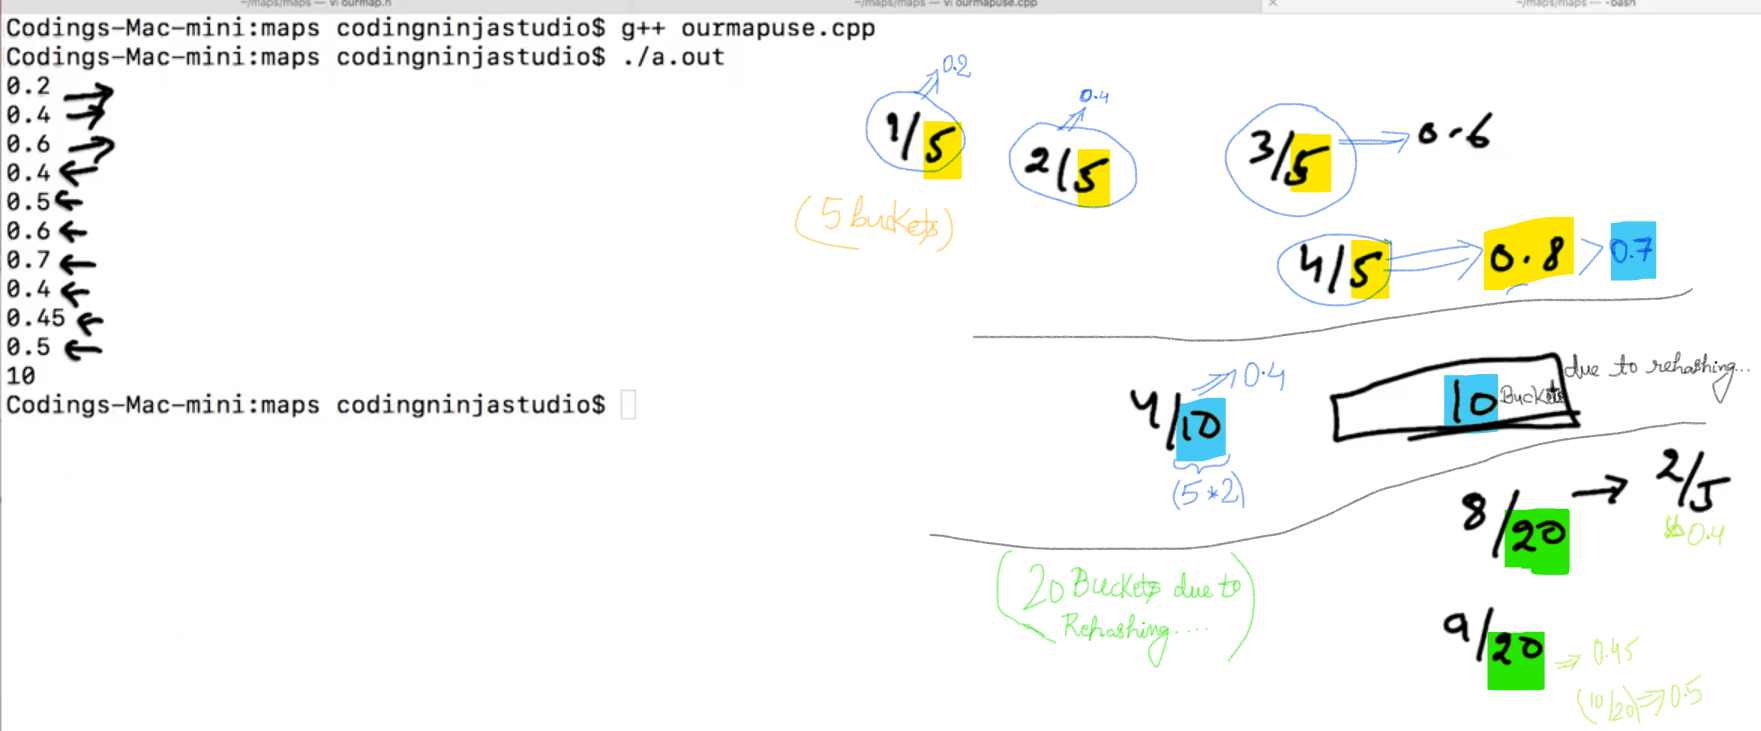 ~/maps/maps — vi ourmap.h
~/maps/maps — vi ourmapuse.cpp
~/maps/maps — -bash
Codings-Mac-mini:maps codingninjastudio$ g++ ourmapuse.cpp
Codings-Mac-mini:maps codingninjastudio$ ./a.out
0.2
0.4
0.6
0.4
0.5
0.6
0.7
0.4
0.45
0.5
10
Codings-Mac-mini:maps codingninjastudio$
0.2
1/5
0.4
2/5
3/5 → 0.6
(5 buckets)
4/5 ⇒ 0.8 > 0.7
4/10 ⇒ 0.4
(5*2)
10 Buckets due to rehashing...
8/20 → 2/5
0.4
(20 Buckets due to
Rehashing....)
9/20 ⇒ 0.45
(10/20) ⇒ 0.5